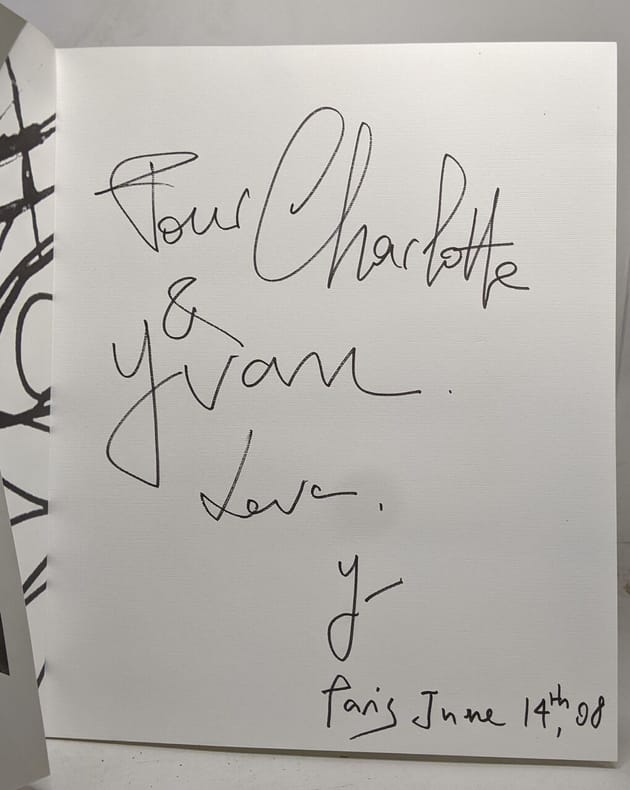 Pour Charlotte
&
Yvan.
Love.
Y-
Paris June 14th, 08